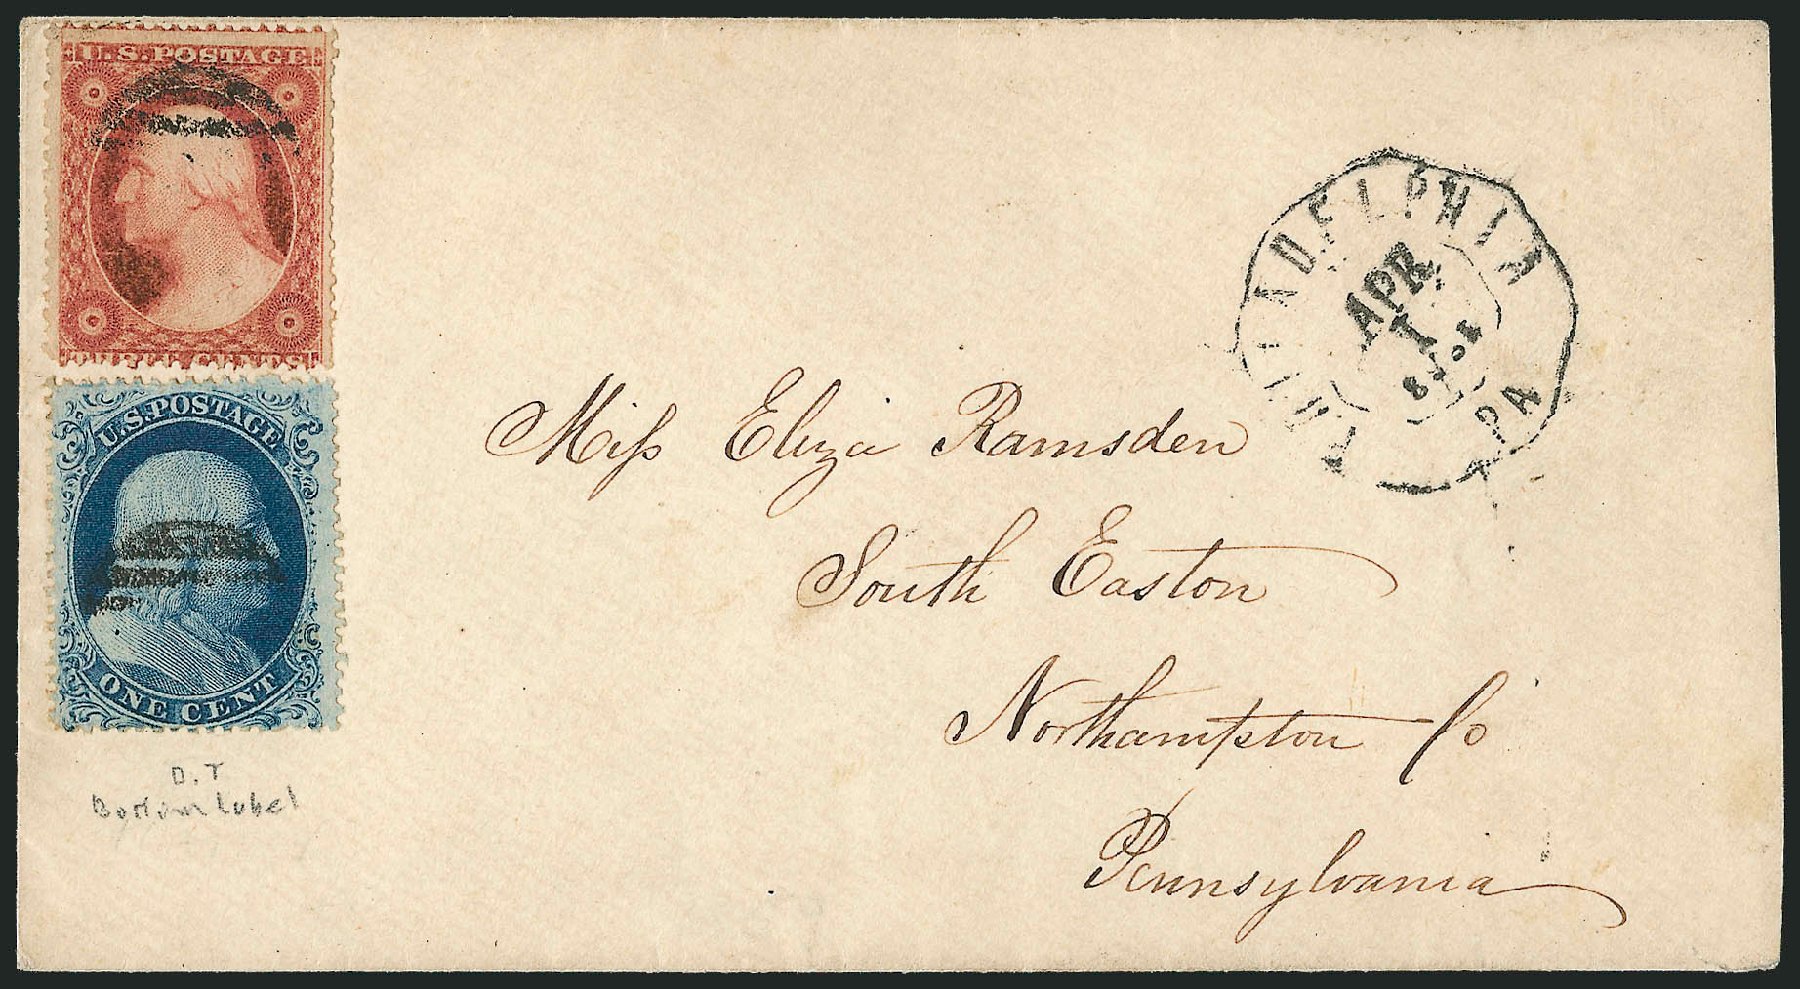 U.S. POSTAGE
THREE CENTS
U.S. POSTAGE
ONE CENT
D.T
Bottom Label
PHILADELPHIA PA
APR
1
Miss Eliza Ramsden
South Easton
Northampton Co
Pennsylvania